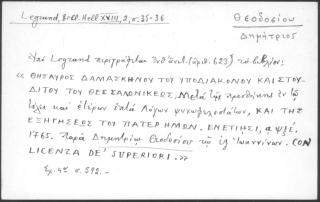 Legrand, Bibl. Hell. XXIII, 2, σ. 35-36
Θεοδοσίου
Δημήτριος
Ὑπὸ Legrand περιγράφεται ὑπ' ἀριθ. (ἀριθ. 623) τὸ βιβλίον:
« ΘΗΣΑΥΡΟΣ ΔΑΜΑΣΚΗΝΟΥ ΤΟΥ ΥΠΟΔΙΑΚΟΝΟΥ ΚΑΙ ΣΤΟΥ-
ΔΙΤΟΥ ΤΟΥ ΘΕΣΣΑΛΟΝΙΚΕΩΣ. Μετὰ τῆς προσθήκης ἐν τῷ
τέλει καὶ ἑτέρων ἑπτὰ Λόγων ψυχωφελεστάτων, ΚΑΙ ΤΗΣ
ΕΞΗΓΗΣΕΩΣ ΤΟΥ ΠΑΤΕΡ ΗΜΩΝ. ΕΝΕΤΙΗΣΙ, αψξε΄.
1765. Παρὰ Δημητρίῳ Θεοδοσίου τῷ ἐξ Ἰωαννίνων. CON
LICENZA DE' SUPERIORI. »
Σχ. 4ον σ. 592. –